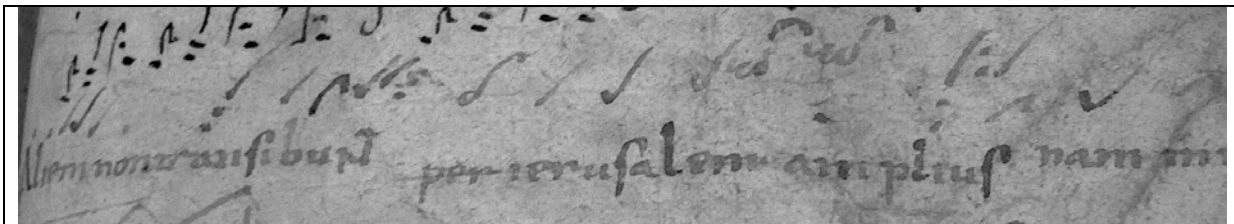 Alieni non transibunt per ierusalem amplius nam